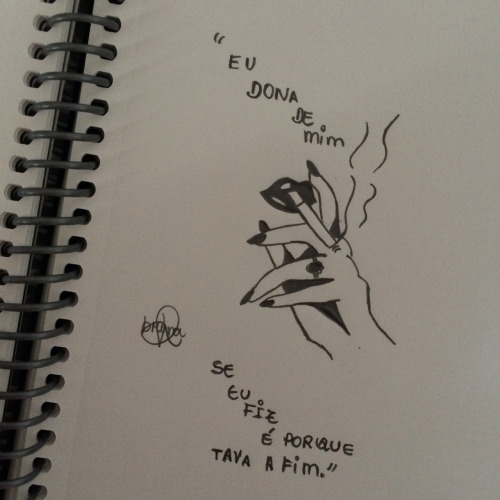 “
EU
DONA
DE
mim
SE
EU
FIZ
É PORQUE
TAVA A FIM.”